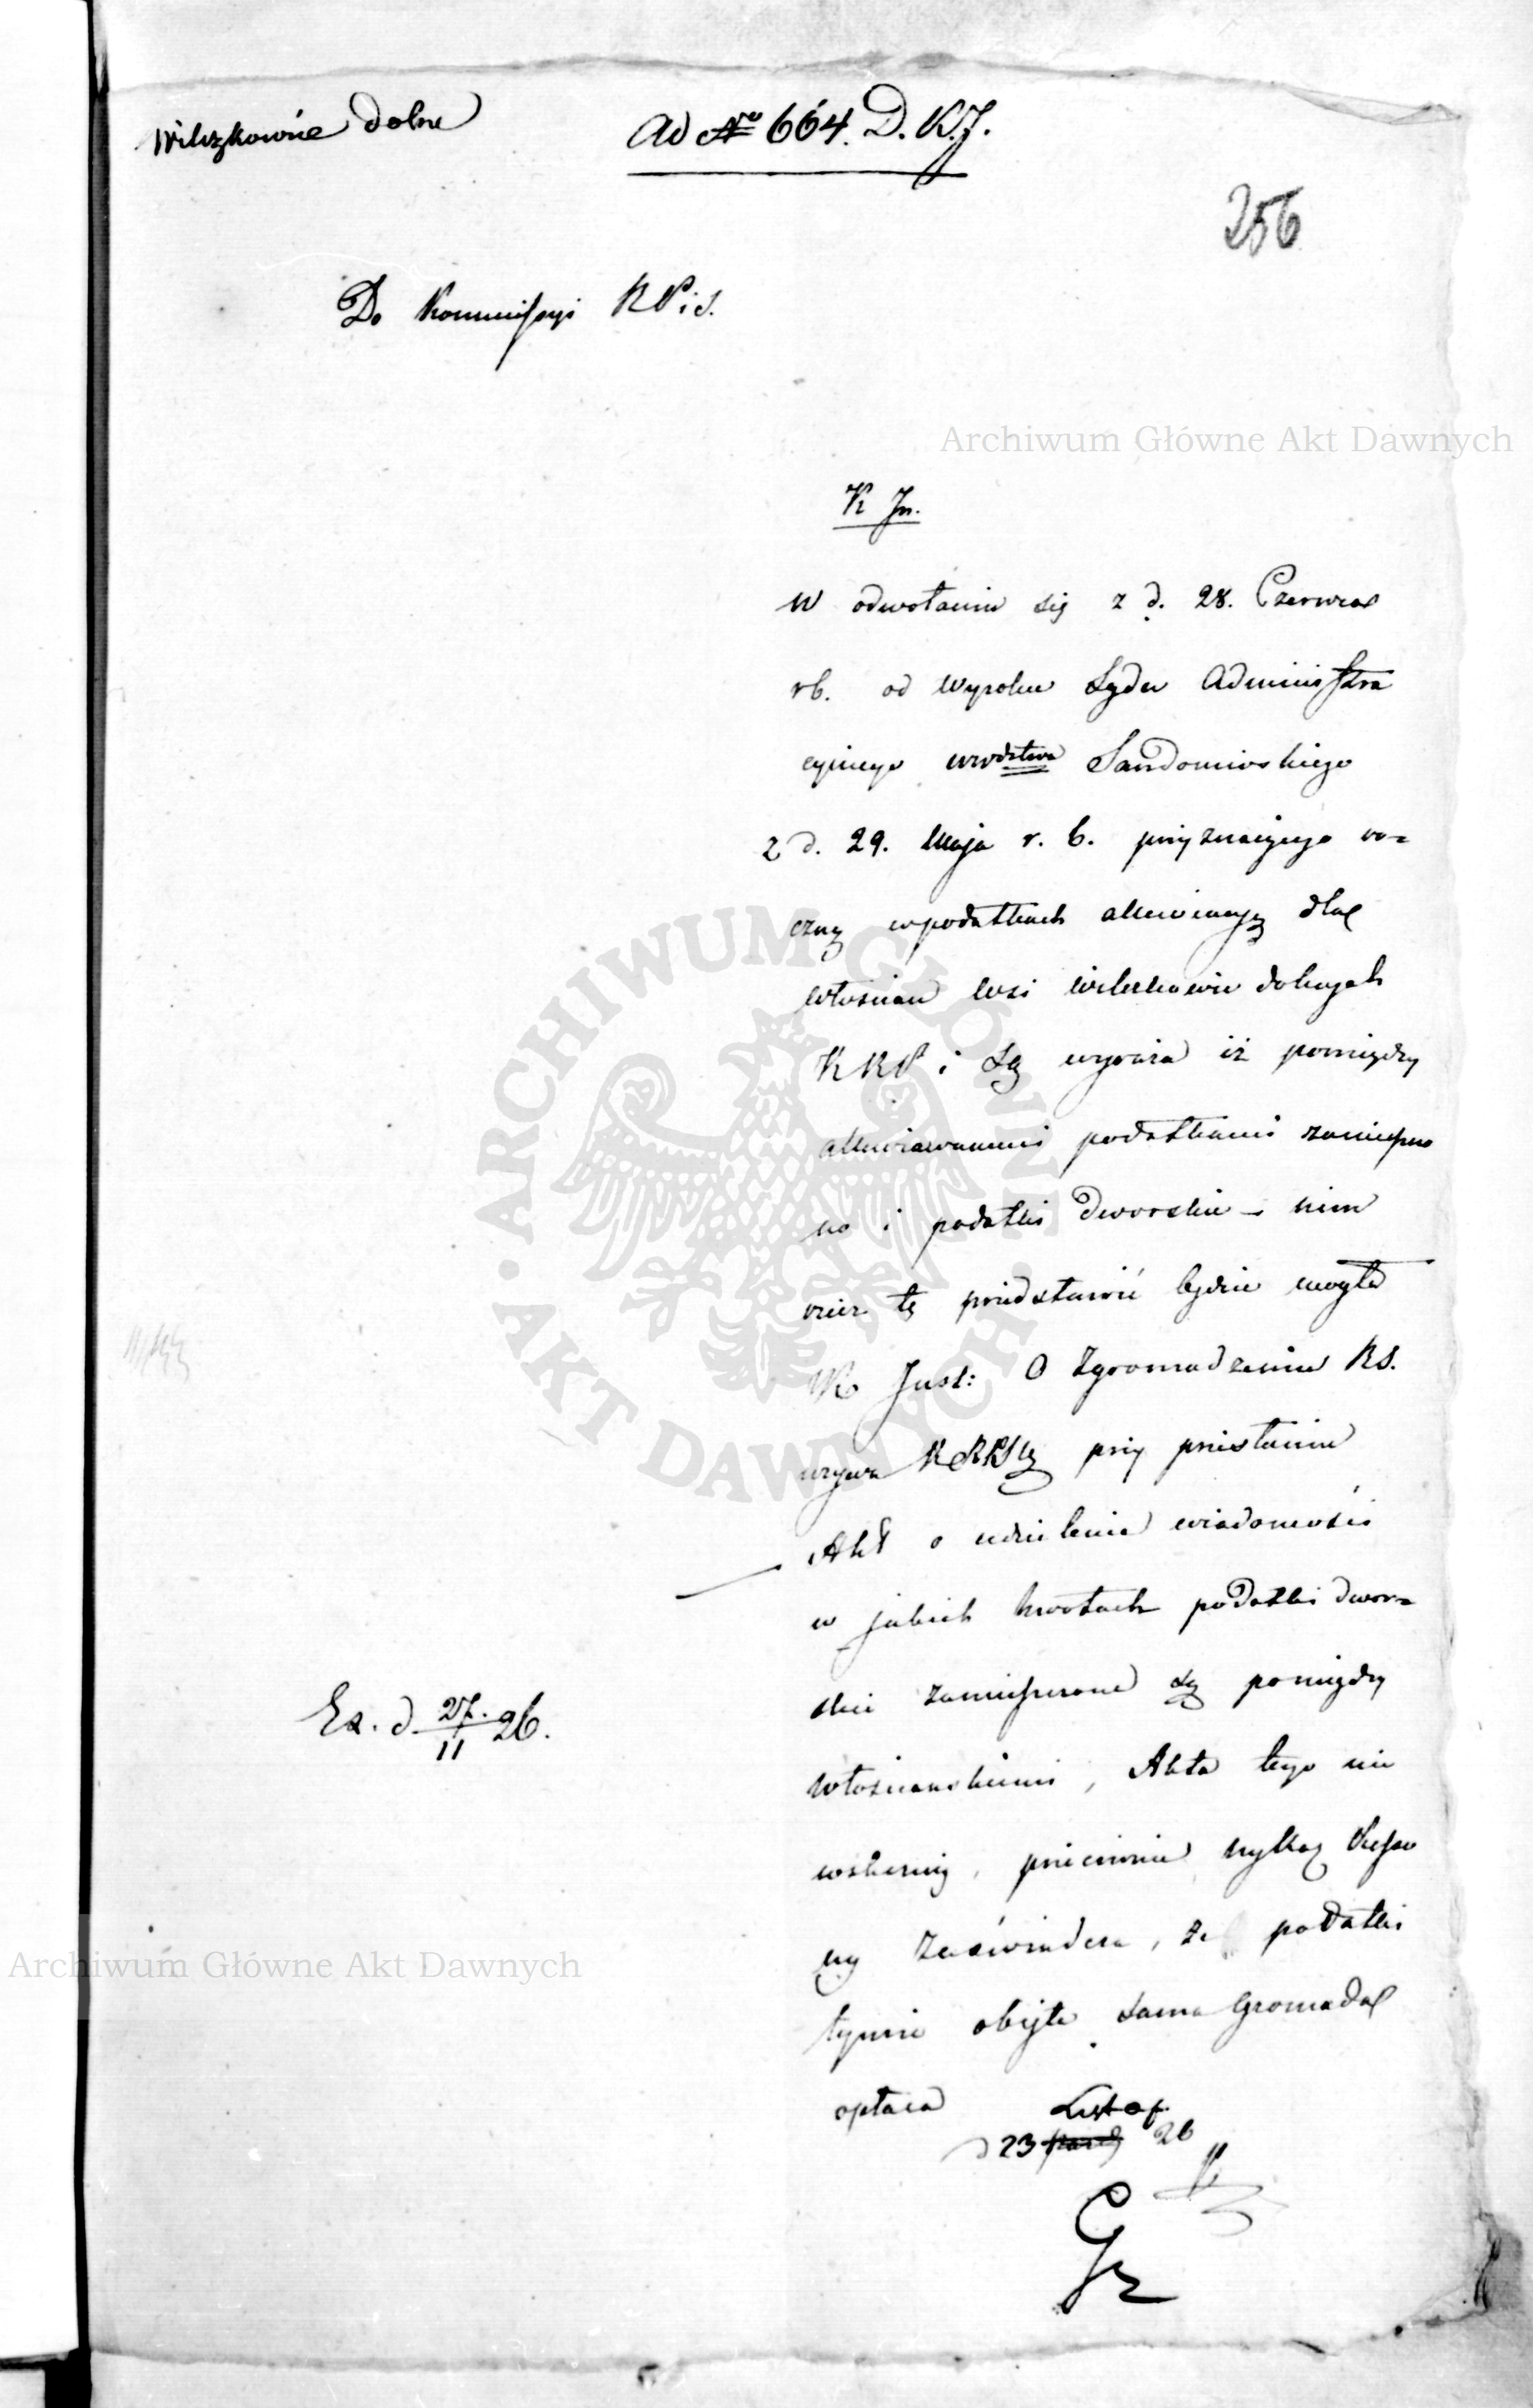 Wilczkowice dolne
Ad No 664. D. K. J.
256
Do Kommissyi R P i S.
Archiwum Główne Akt Dawnych
K Jn.
W odwołaniu się z d. 28. Czerwca
rb. od Wyroku Sądu Administra
cyinego wwdztwa Sandomirskiego
z d. 29. Maja r. b. przyznaiącego ro=
czną w podatkach allewiacyą dla
włościan wsi Wilczkowic dolnych
K R P i S wyraża iż pomiędzy
allewiowanemi podatkami zamieszczo
no i podatki dworskie – nim
rzecz tę przedstawić będzie mogła
K Just: O Zgromadzeniu RS.
wzywa K R P i S przy przesłaniu
Akt o udzielenie wiadomości
w jakich kwotach podatki dwor=
skie zamieszczone są pomiędzy
włościańskiemi, Akta tego nie
wskazuią, przeciwnie wykaz kasso
wy zaświadcza, że podatki
tymże objęte sama Gromada
opłaca
Listop.
d 23 26
Ex. d. 27./11 26.
ARCHIWUM GŁÓWNE • AKT DAWNYCH •
Archiwum Główne Akt Dawnych